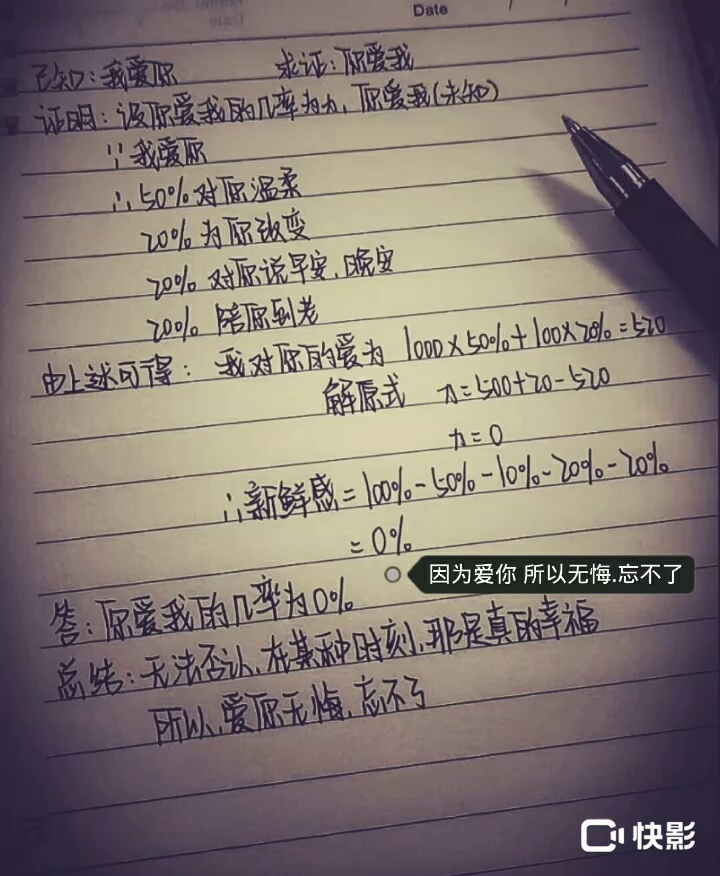 Date
已知:我爱你 求证:你爱我
证明:设你爱我的几率为x,你爱我(未知)
∵我爱你
∴50%对你温柔
20%为你改变
20%对你说早安,晚安
20%陪你到老
由上述可得:我对你的爱为 1000×50%+100×20%=520
解原式 x=500+20-520
x=0
∴新鲜感=100%-50%-10%-20%-20%
=0%
因为爱你 所以无悔.忘不了
答:你爱我的几率为0%
总结:无法否认,在某种时刻,那是真的幸福
所以,爱你无悔,忘不了
快影